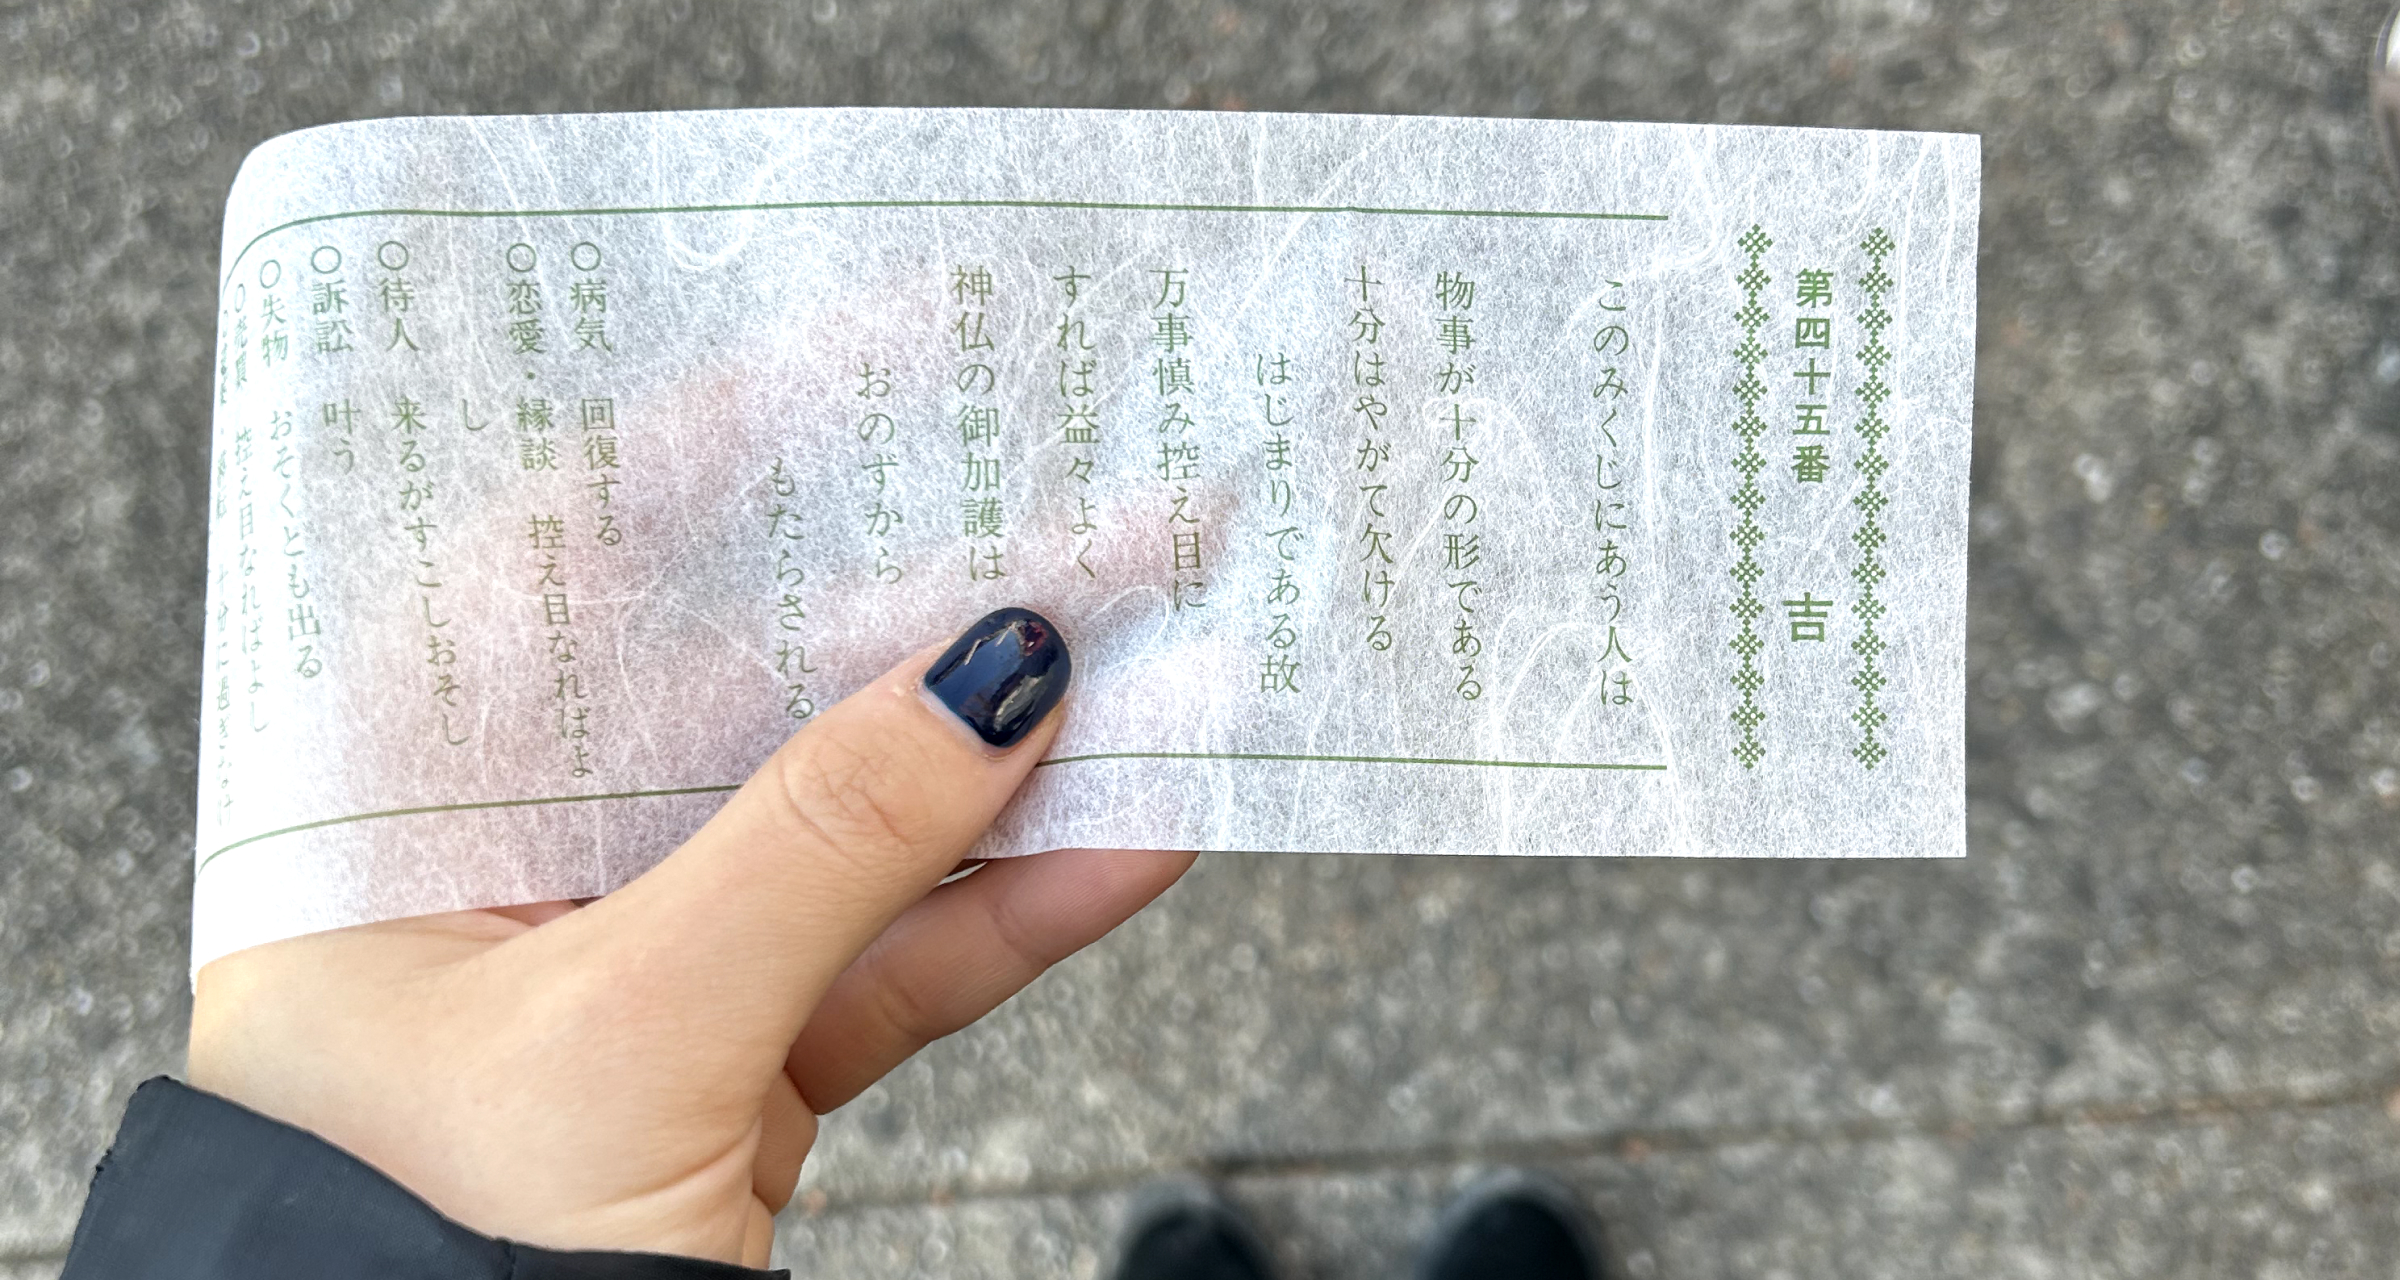 第四十五番 吉
このみくじにあう人は
物事が十分の形である
十分はやがて欠ける
はじまりである故
万事慎み控え目に
すれば益々よく
神仏の御加護は
おのずから
もたらされる
○病気 回復する
○恋愛・縁談 控え目なればよ
し
○待人 来るがすこしおそし
○訴訟 叶う
○失物 おそくとも出る
○売買 控え目なればよし